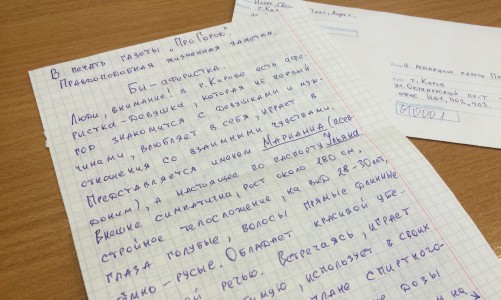 В печать газеты "Про Город"
Правдоподобная жизненная заметка.
Би-аферистка.
Люди, внимание! в г. Кирово есть афе-
ристка-девушка, которая не первый
год знакомится с девушками и муж-
чинами, влюбляет в себя, играет в
отношения со взаимными чувствами.
Представляется именем Марианна (псев-
доним), а настоящее по паспорту Ульяна
Внешне симпатична, рост около 180 см,
стройное телосложение, на вид 28-30 лет,
глаза голубые, волосы прямые длинные
тёмно-русые. Обладает красивой убе-
речью. Встречаясь, играет
использует в своих
плане спиртного-
дозы
на
в редакцию газеты
г. Киров
ул. Октябрьский пр-т
офис 401, 402, 403.